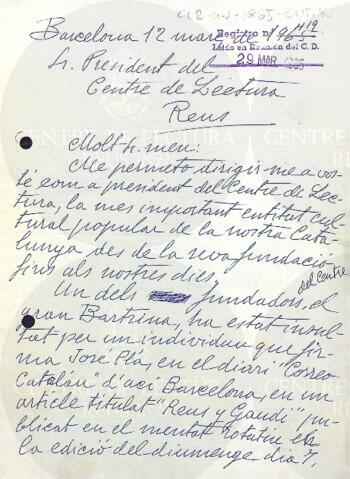 Barcelona 12 març de 1965
Registro nº 419
Leido en Reunión del C. D.
29 MAR. 1965
Sr. President del
Centre de Lectura
Reus
Molt Sr. meu:
Me permeto dirigir-me a vos-
té com a president del Centre de Lec-
tura, la mes important entitat cul-
tural popular de la nostra Cata-
lunya des de la seva fundació
fins als nostres dies.
Un dels fundadors del Centre, el
gran Bartrina, ha estat insul-
tat per un individuu que fir-
ma José Plá, en el diari "Correo
Catalán" d'aci Barcelona, en un
article titulat "Reus y Gaudí" pu-
blicat en el mentat rotatiu en
la edició del diumenge dia 7,